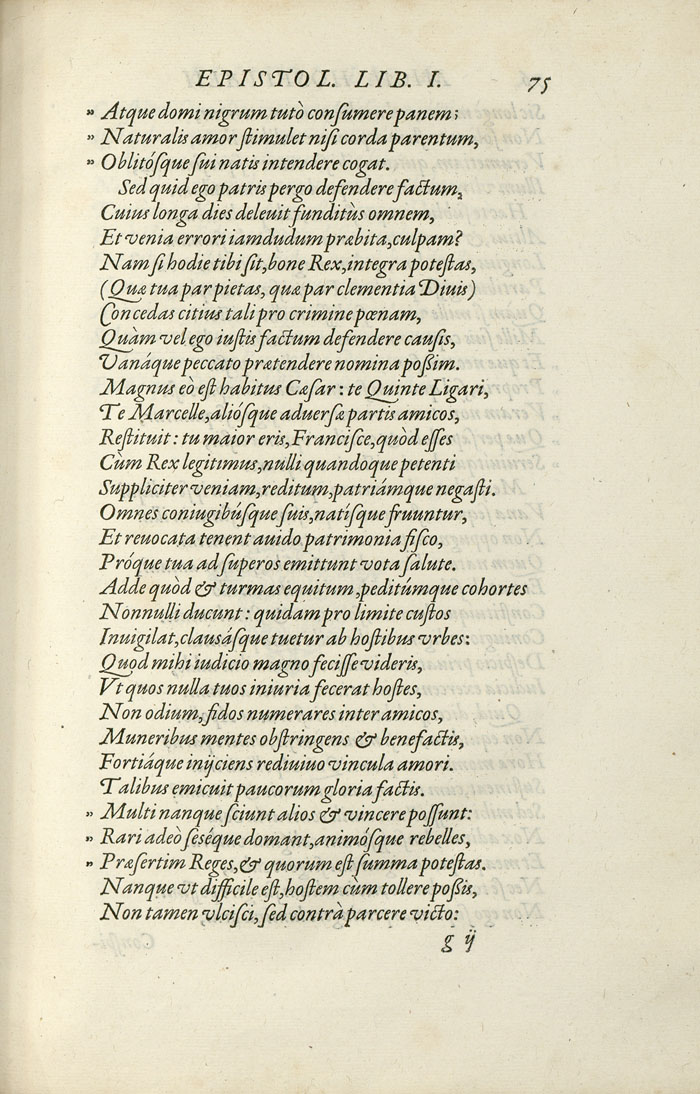 EPISTOL. LIB. I. 75
" Atque domi nigrum tutò consumere panem;
" Naturalis amor stimulet nisi corda parentum,
" Oblitósque sui natis intendere cogat.
Sed quid ego patris pergo defendere factum,
Cuius longa dies deleuit funditùs omnem,
Et venia errori iamdudum præbita, culpam?
Nam si hodie tibi sit, bone Rex, integra potestas,
(Quæ tua par pietas, quæ par clementia Diuis)
Concedas citius tali pro crimine pœnam,
Quàm vel ego iustis factum defendere causis,
Vanáque peccato prætendere nomina possim.
Magnus eò est habitus Cæsar: te Quinte Ligari,
Te Marcelle, aliósque aduersæ partis amicos,
Restituit: tu maior eris, Francisce, quòd esses
Cùm Rex legitimus, nulli quandoque petenti
Suppliciter veniam, reditum, patriámque negasti.
Omnes coniugibúsque suis, natísque fruuntur,
Et reuocata tenent auido patrimonia fisco,
Próque tua ad superos emittunt vota salute.
Adde quòd & turmas equitum, peditúmque cohortes
Nonnulli ducunt: quidam pro limite custos
Inuigilat, clausásque tuetur ab hostibus vrbes:
Quod mihi iudicio magno fecisse videris,
Vt quos nulla tuos iniuria fecerat hostes,
Non odium, fidos numerares inter amicos,
Muneribus mentes obstringens & benefactis,
Fortiáque inijciens rediuiuo vincula amori.
Talibus emicuit paucorum gloria factis.
" Multi nanque sciunt alios & vincere possunt:
" Rari adeò seséque domant, animósque rebelles,
" Præsertim Reges, & quorum est summa potestas.
Nanque vt difficile est, hostem cùm tollere possis,
Non tamen vlcisci, sed contrà parcere victo:
g ij